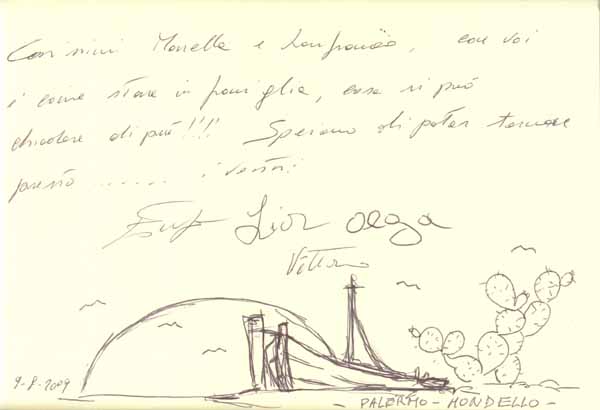 Carissimi Marella e Lanfranco, con voi
è come stare in famiglia, cosa si può
chiedere di più!!! Speriamo di poter tornare
presto ...... i vostri
Lior Olga
Vittorio
9-8-2009
- PALERMO - MONDELLO -